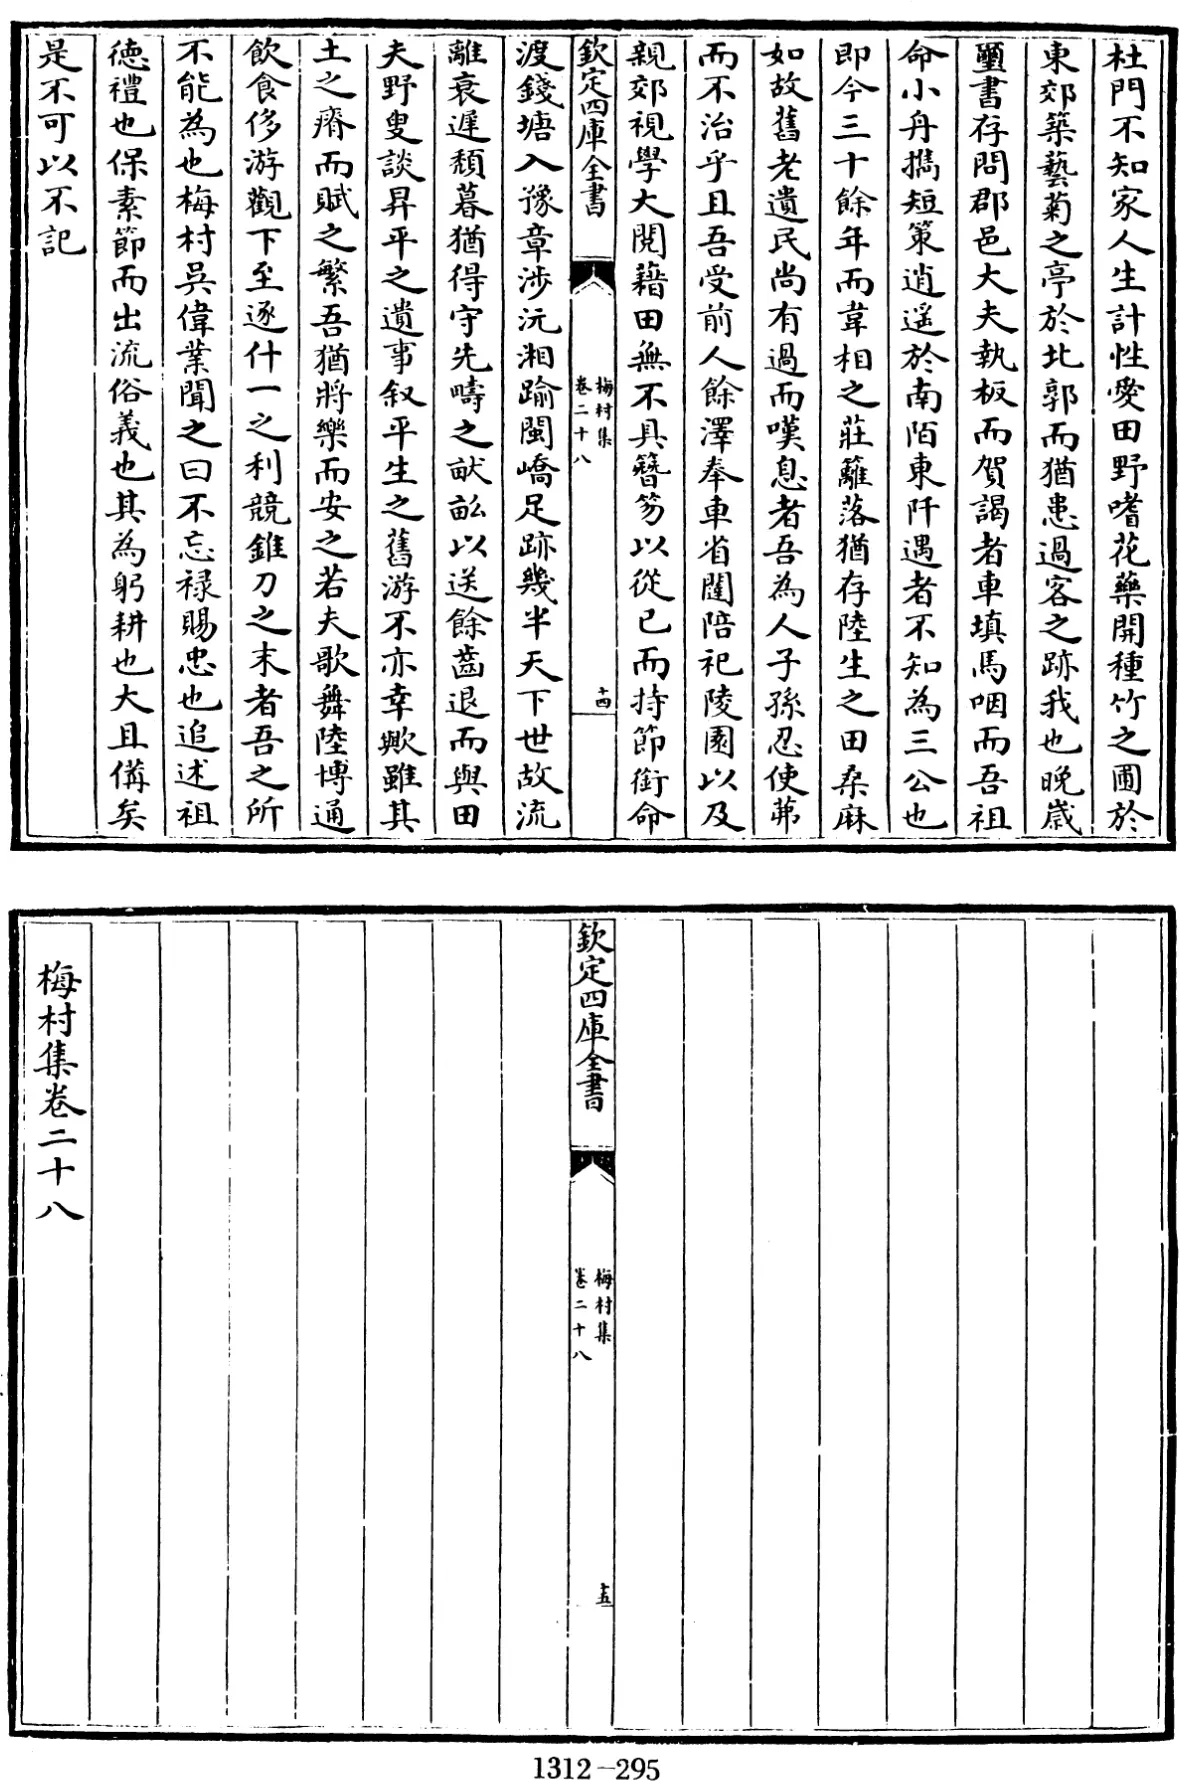 杜門不知家人生計性愛田野嗜花藥開種竹之圃於
東郊築藝菊之亭於北郭而猶患過客之跡我也晚歲
璽書存問郡邑大夫執板而賀謁者車填馬咽而吾祖
命小舟攜短策逍遙於南陌東阡遇者不知為三公也
即今三十餘年而韋相之莊籬落猶存陸生之田桑麻
如故舊老遺民尚有過而嘆息者吾為人子孫忍使茀
而不治乎且吾受前人餘澤奉車省闥陪祀陵園以及
親郊視學大閱藉田無不具簪笏以從已而持節銜命
欽定四庫全書
梅村集
卷二十八
十四
渡錢塘入豫章涉沅湘踰閩嶠足跡幾半天下世故流
離衰遲頽暮猶得守先疇之畎畝以送餘齒退而與田
夫野叟談昇平之遺事叙平生之舊游不亦幸歟雖其
土之瘠而賦之繁吾猶將樂而安之若夫歌舞陸博通
飲食侈游觀下至逐什一之利競錐刀之末者吾之所
不能為也梅村吳偉業聞之曰不忘祿賜忠也追述祖
德禮也保素節而出流俗義也其為躬耕也大且備矣
是不可以不記
欽定四庫全書
梅村集
卷二十八
十五
梅村集卷二十八
1312-295